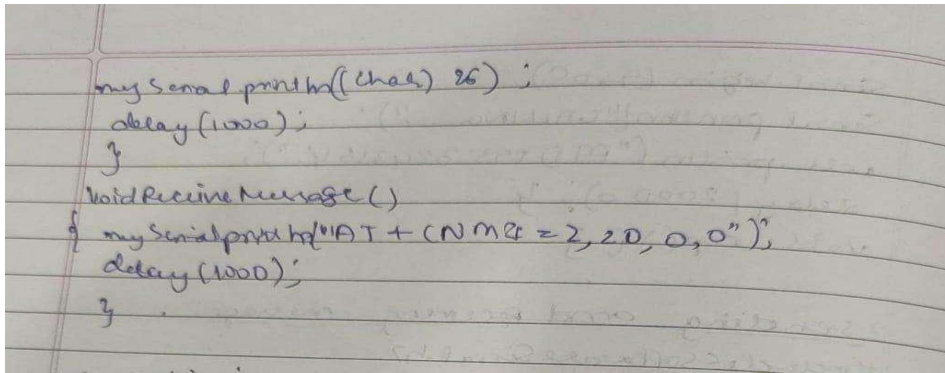 mySerial.println((char) 26);
delay(1000);
}
void ReceiveMessage()
{ mySerial.println("AT + CNMI = 2, 20, 0, 0");
delay(1000);
}